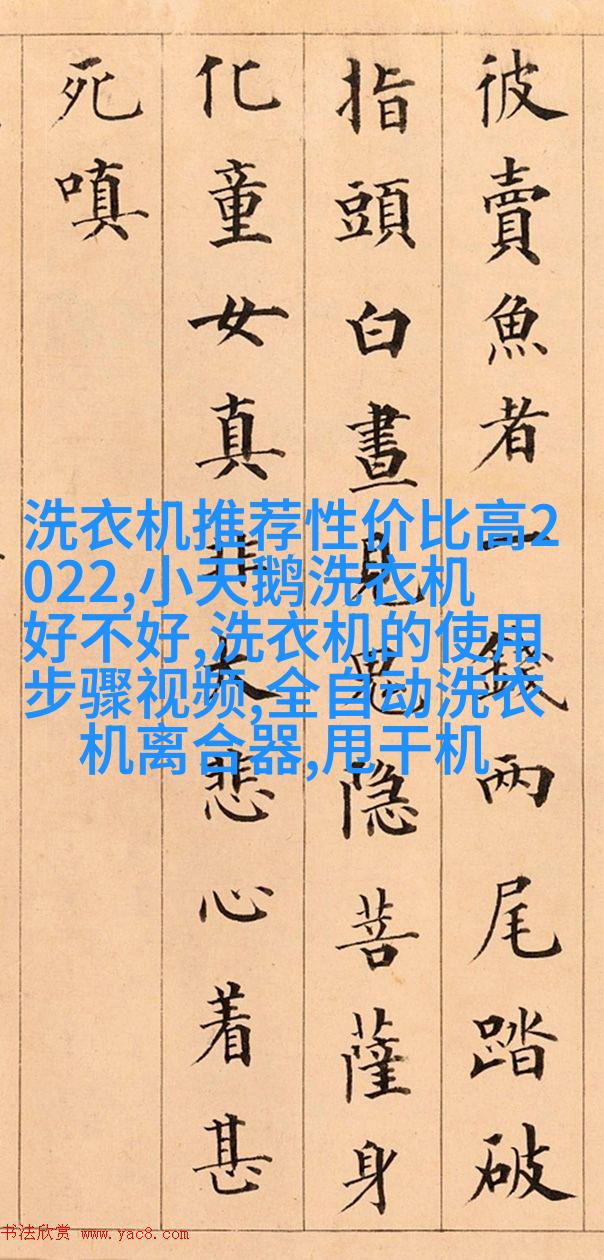 彼賣魚者一錢兩尾踏破
指頭白晝見鬼隐菩薩身
化童女真非大悲心着甚
死嗔
洗衣机推荐性价比高2
022,小天鹅洗衣机
好不好,洗衣机的使用
步骤视频,全自动洗衣
机离合器,甩干机
书法欣赏 www.yac8.com